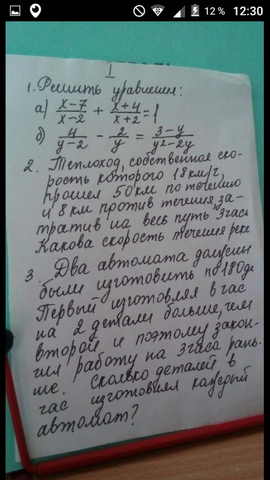 12 % 12:30
I
1. Решить уравнения:
а) x-7/x-2 + x+4/x+2 = 1
б) 4/y-2 - 2/y = 3-y/y²-2y
2. Теплоход, собственная ско-
рость которого 18 км/г,
прошел 50 км по течению
и 8 км против течения, за-
тратив на весь путь 3 часа
Какова скорость течения реки
3. Два автомата должны
были изготовить по 180 де
Первый изготовлял в час
на 2 детали больше, чем
второй, и поэтому закон-
чил работу на 3 часа рань-
ше. Сколько деталей в
час изготовлял каждый
автомат?